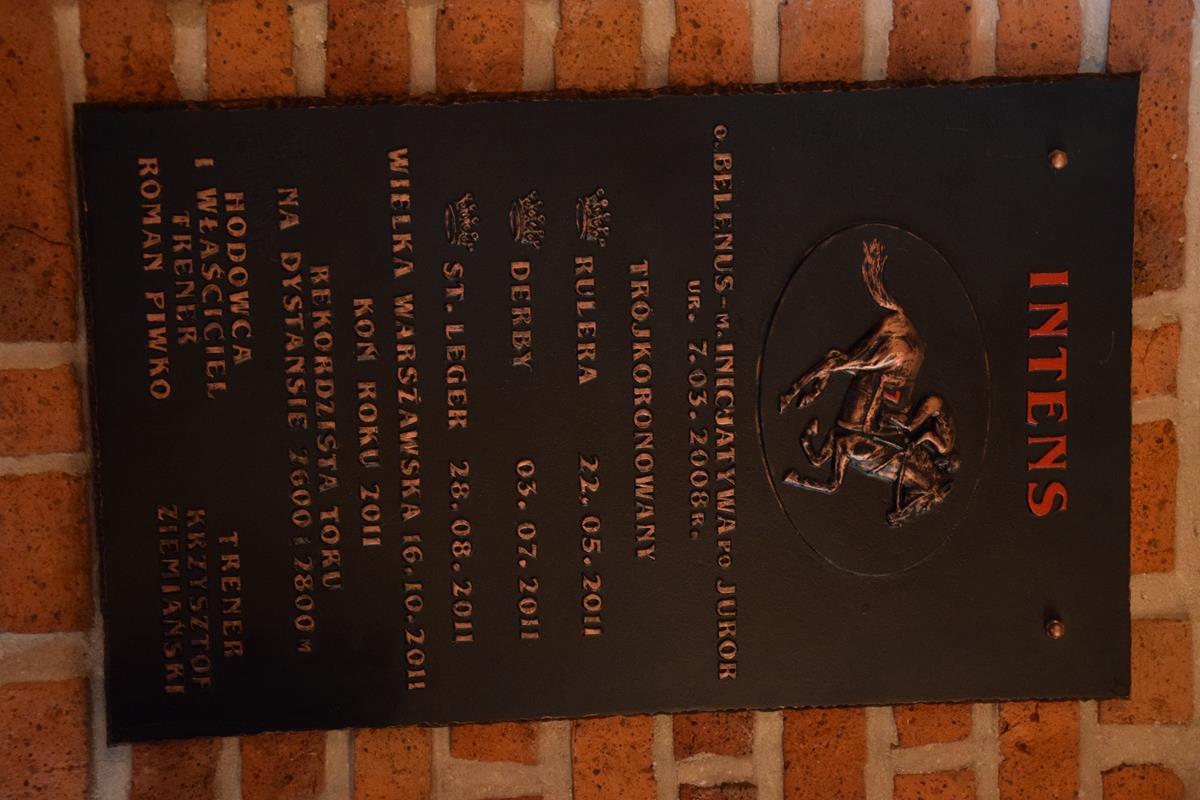 INTENS
O. BELENUS-M. INICJATYWA PO JUROR
UR. 7.03.2008R.
TRÓJKORONOWANY
RULERA 22.05.2011
DERBY 03.07.2011
ST. LEGER 28.08.2011
WIELKA WARSZAWSKA 16.10.2011
KOŃ ROKU 2011
REKORDZISTA TORU
NA DYSTANSIE 2600 i 2800 M
HODOWCA
I WŁAŚCICIEL
TRENER
ROMAN PIWKO
TRENER
KRZYSZTOF
ZIEMIAŃSKI